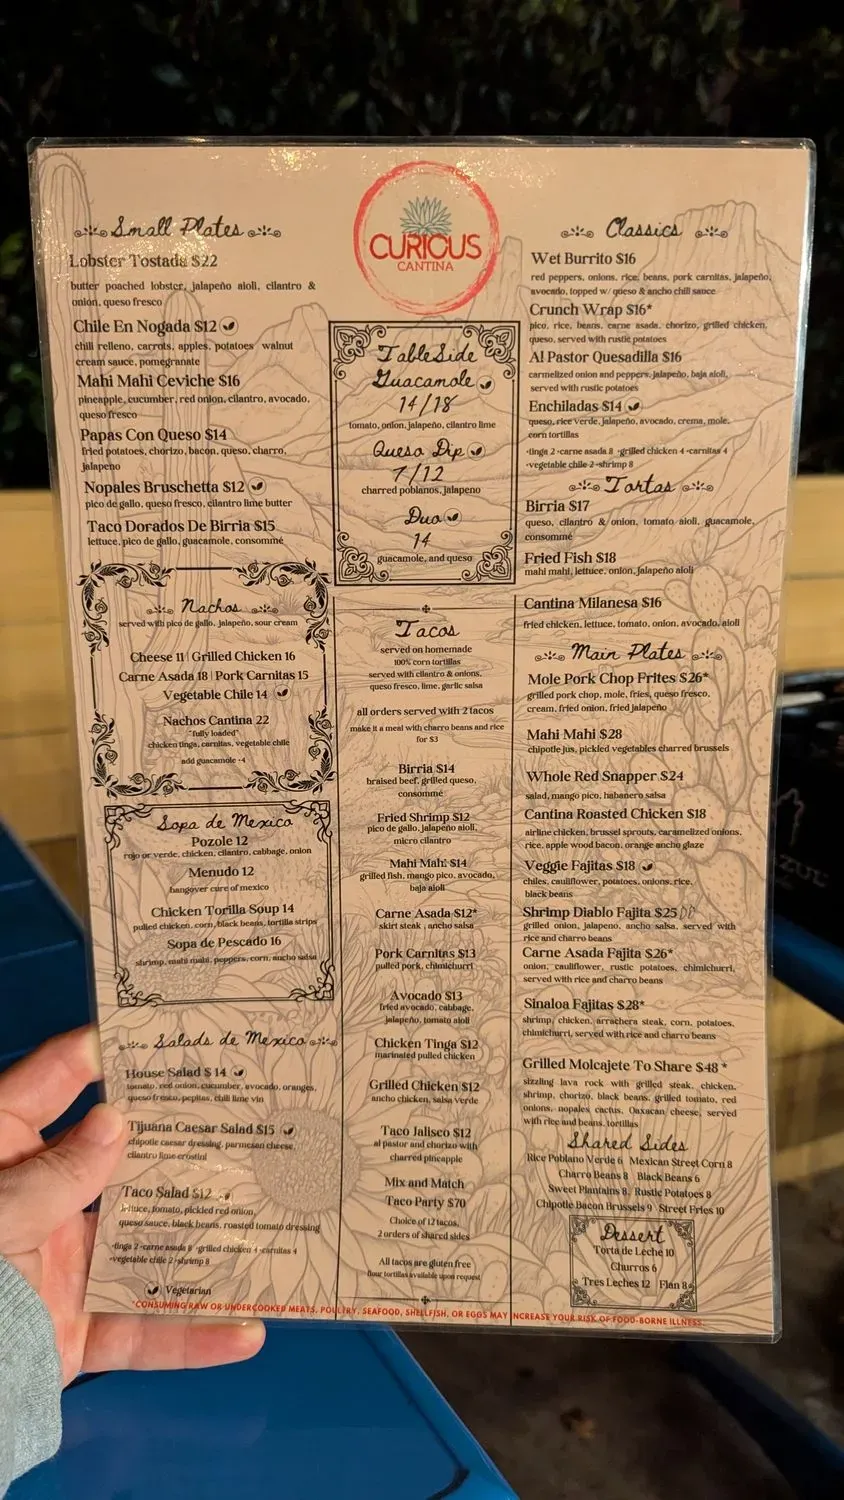 Small Plates
Lobster Tostada $22
butter poached lobster, jalapeño aioli, cilantro &
onion, queso fresco
Chile En Nogada $12
chili relleno, carrots, apples, potatoes walnut
cream sauce, pomegranate
Mahi Mahi Ceviche $16
pineapple, cucumber, red onion, cilantro, avocado,
queso fresco
Papas Con Queso $14
fried potatoes, chorizo, bacon, queso, charro,
jalapeno
Nopales Bruschetta $12
pico de gallo, queso fresco, cilantro lime butter
Taco Dorados De Birria $15
lettuce, pico de gallo, guacamole, consommé
Nachos
served with pico de gallo, jalapeño, sour cream
Cheese 11 | Grilled Chicken 16
Carne Asada 18 | Pork Carnitas 15
Vegetable Chile 14
Nachos Cantina 22
"fully loaded"
chicken tinga, carnitas, vegetable chile
add guacamole +4
Sopa de Mexico
Pozole 12
rojo or verde, chicken, cilantro, cabbage, onion
Menudo 12
hangover cure of mexico
Chicken Torilla Soup 14
pulled chicken, corn, black beans, tortilla strips
Sopa de Pescado 16
shrimp, mahi mahi, peppers, corn, ancho salsa
Salads de Mexico
House Salad $14
tomato, red onion, cucumber, avocado, oranges,
queso fresco, pepitas, chili lime vin
Tijuana Caesar Salad $15
chipotle caesar dressing, parmesan cheese,
cilantro lime crostini
Taco Salad $12
lettuce, tomato, pickled red onion,
queso sauce, black beans, roasted tomato dressing
-tinga 2 -carne asada 8 -grilled chicken 4 -carnitas 4
-vegetable chile 2 -shrimp 8
Vegetarian
CURIOUS
CANTINA
TableSide
Guacamole
14/18
tomato, onion, jalapeño, cilantro lime
Queso Dip
7/12
charred poblanos, jalapeno
Duo
14
guacamole, and queso
Tacos
served on homemade
100% corn tortillas
served with cilantro & onions,
queso fresco, lime, garlic salsa
all orders served with 2 tacos
make it a meal with charro beans and rice
for $3
Birria $14
braised beef, grilled queso,
consommé
Fried Shrimp $12
pico de gallo, jalapeño aioli,
micro cilantro
Mahi Mahi $14
grilled fish, mango pico, avocado,
baja aioli
Carne Asada $12*
skirt steak, ancho salsa
Pork Carnitas $13
pulled pork, chimichurri
Avocado $13
fried avocado, cabbage,
jalapeño, tomato aioli
Chicken Tinga $12
marinated pulled chicken
Grilled Chicken $12
ancho chicken, salsa verde
Taco Jalisco $12
al pastor and chorizo with
charred pineapple
Mix and Match
Taco Party $70
Choice of 12 tacos,
2 orders of shared sides
All tacos are gluten free
flour tortillas available upon request
Classics
Wet Burrito $16
red peppers, onions, rice, beans, pork carnitas, jalapeño,
avocado, topped w/ queso & ancho chili sauce
Crunch Wrap $16*
pico, rice, beans, carne asada, chorizo, grilled chicken,
queso, served with rustic potatoes
Al Pastor Quesadilla $16
carmelized onion and peppers, jalapeño, baja aioli,
served with rustic potatoes
Enchiladas $14
queso, rice verde, jalapeño, avocado, crema, mole,
corn tortillas
-tinga 2 -carne asada 8 -grilled chicken 4 -carnitas 4
-vegetable chile 2 -shrimp 8
Tortas
Birria $17
queso, cilantro & onion, tomato aioli, guacamole,
consommé
Fried Fish $18
mahi mahi, lettuce, onion, jalapeño aioli
Cantina Milanesa $16
fried chicken, lettuce, tomato, onion, avocado, aioli
Main Plates
Mole Pork Chop Frites $26*
grilled pork chop, mole, fries, queso fresco,
cream, fried onion, fried jalapeño
Mahi Mahi $28
chipotle jus, pickled vegetables charred brussels
Whole Red Snapper $24
salad, mango pico, habanero salsa
Cantina Roasted Chicken $18
airline chicken, brussel sprouts, caramelized onions,
rice, apple wood bacon, orange ancho glaze
Veggie Fajitas $18
chiles, cauliflower, potatoes, onions, rice,
black beans
Shrimp Diablo Fajita $25
grilled onion, jalapeno, ancho salsa, served with
rice and charro beans
Carne Asada Fajita $26*
onion, cauliflower, rustic potatoes, chimichurri,
served with rice and charro beans
Sinaloa Fajitas $28*
shrimp, chicken, arrachera steak, corn, potatoes,
chimichurri, served with rice and charro beans
Grilled Molcajete To Share $48 *
sizzling lava rock with grilled steak, chicken,
shrimp, chorizo, black beans, grilled tomato, red
onions, nopales cactus, Oaxacan cheese, served
with rice and beans, tortillas
Shared Sides
Rice Poblano Verde 6 Mexican Street Corn 8
Charro Beans 8 Black Beans 6
Sweet Plantains 8 Rustic Potatoes 8
Chipotle Bacon Brussels 9 Street Fries 10
Dessert
Torta de Leche 10
Churros 6
Tres Leches 12 Flan 8
*CONSUMING RAW OR UNDERCOOKED MEATS, POULTRY, SEAFOOD, SHELLFISH, OR EGGS MAY INCREASE YOUR RISK OF FOOD-BORNE ILLNESS.